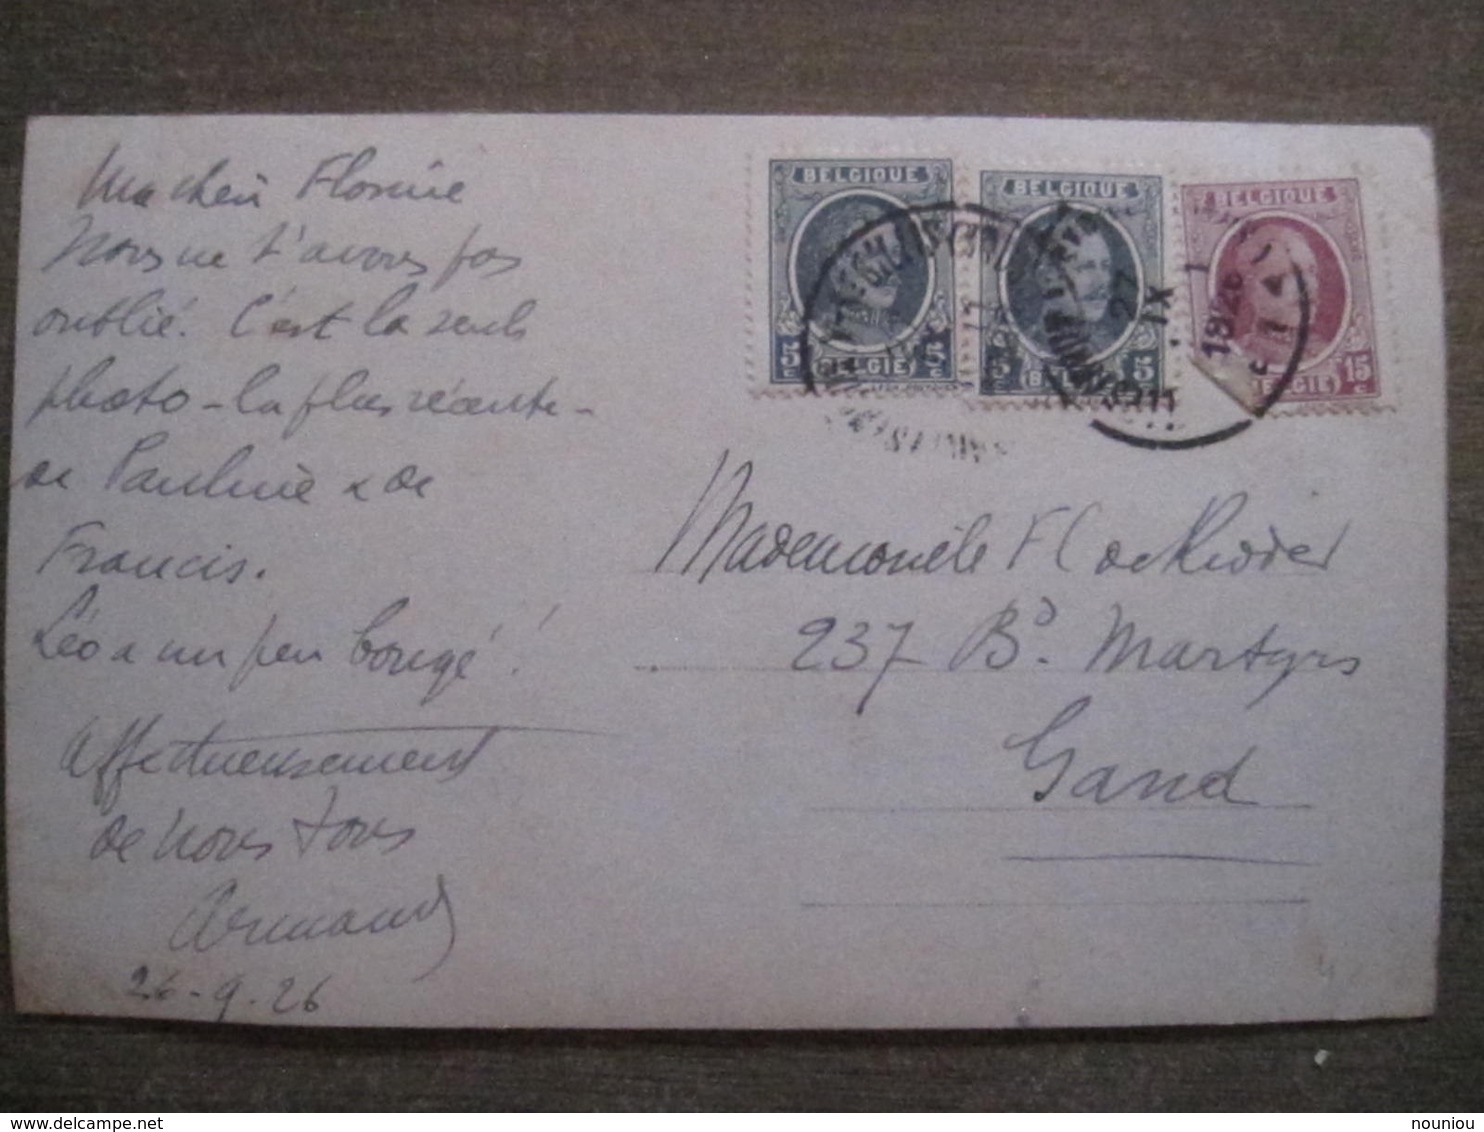 Ma chère Florine
Nous ne t'avons pas
oublié. C'est la seule
photo - la plus récente -
de Pauline & de
Francis.
Léo a un peu bougé !
Affectueusement
de nous tous
Armand
26-9.26
BELGIQUE
5c 5c
BELGIE
BELGIQUE
5c 5c
BELGIQUE
15c
BELGIE
27
IX
1926
Mademoiselle Fl de Ridder
237 Bd. Martyrs
Gand
nouniou